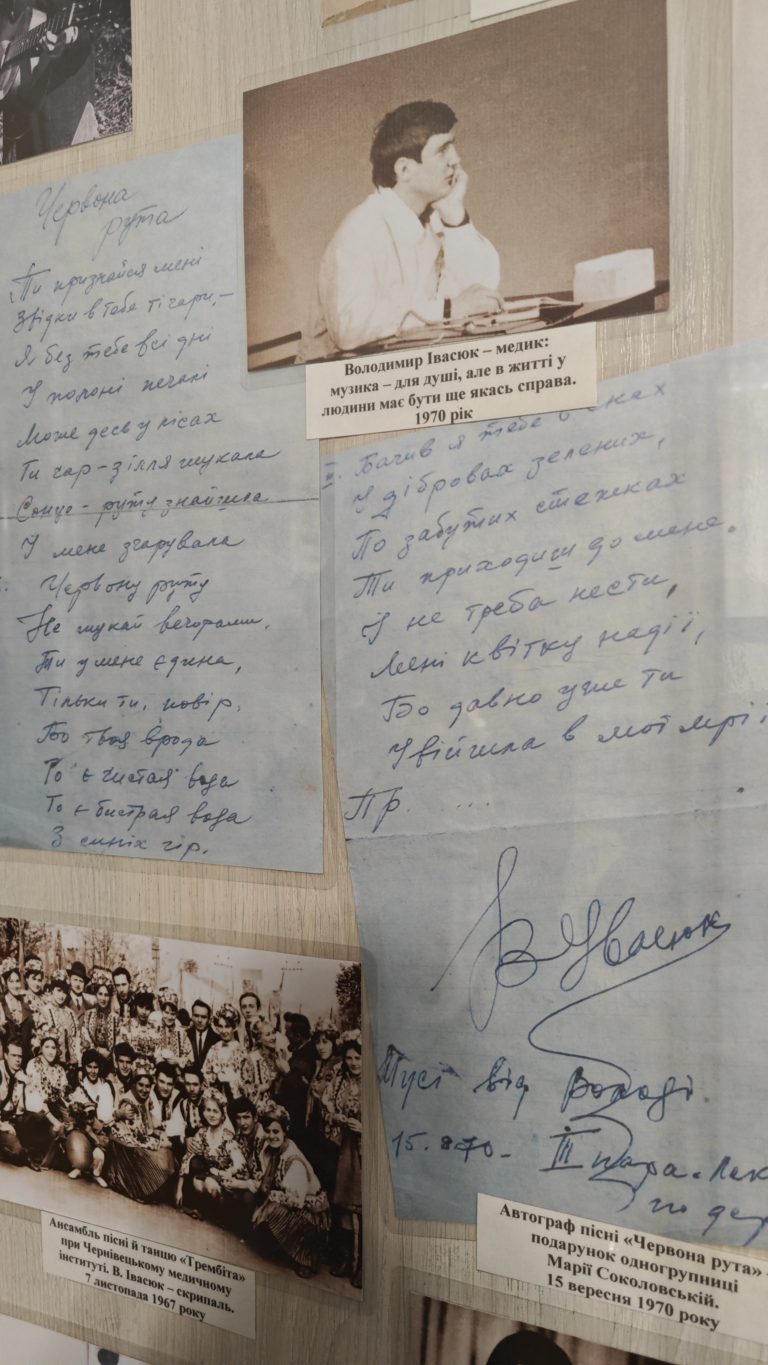 Червона
рута
Ти признайся мені
Звідки в тебе ті чари, –
Я без тебе всі дні
У полоні печалі
Може десь у лісах
Ти чар-зілля шукала
Сонце-руту знайшла
І мене зчарувала
Червону руту
Не шукай вечорами,
Ти у мене єдина,
Тільки ти, повір.
Бо твоя врода
То є чистая вода
То є бистрая вода
З синіх гір.
Володимир Івасюк – медик:
музика – для душі, але в житті у
людини має бути ще якась справа.
1970 рік
II. Бачив я тебе в снах
У дібровах зелених,
По забутих стежках
Ти приходиш до мене.
І не треба нести,
Мені квітку надії,
Бо давно уже ти
Увійшла в мої мрії
Пр. ....
В Івасюк
Мусі від Володі
15. 70 - III пара. Лек
по
Ансамбль пісні й танцю «Трембіта»
при Чернівецькому медичному
інституті. В. Івасюк – скрипаль.
7 листопада 1967 року
Автограф пісні «Червона рута» -
подарунок одногрупниці
Марії Соколовській.
15 вересня 1970 року